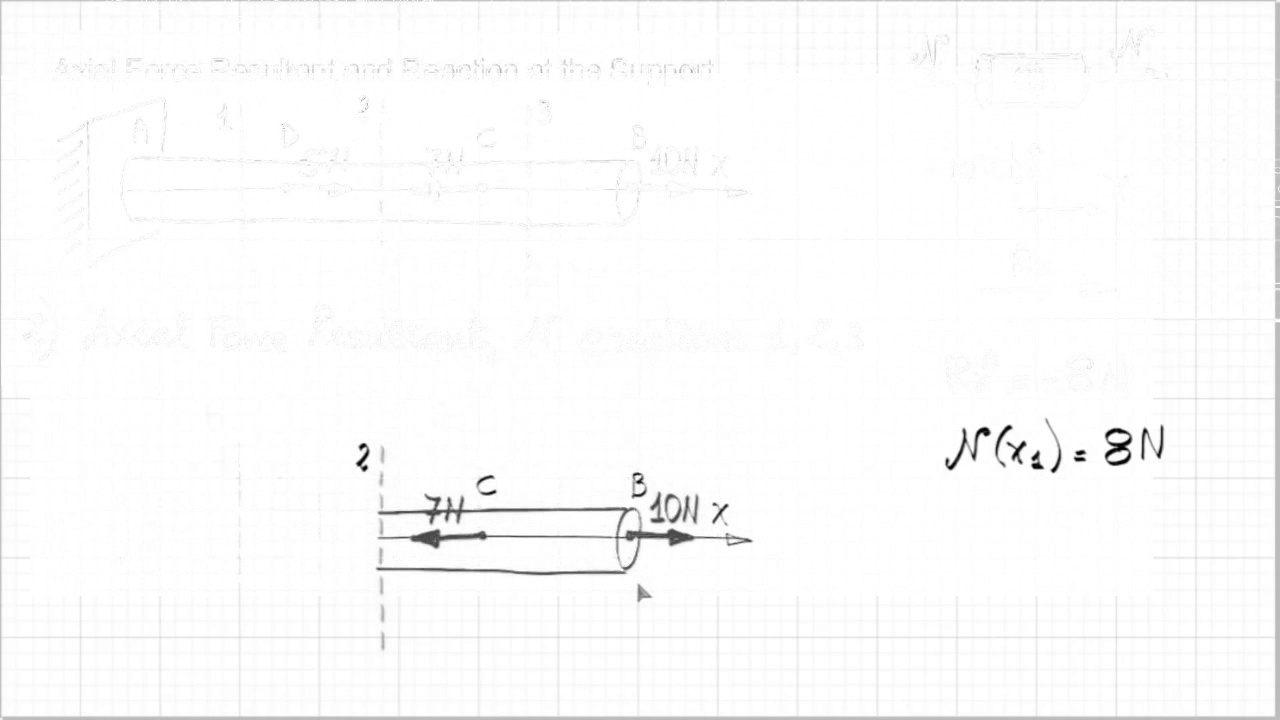 Axial Force Resultant and Reaction at the Support
1 2 3
A D 5N 7N C B 10N x
2) Axial Force Resultant, N, @ sections 1, 2, 3
N N
= -8N
N(x₁) = 8N
2
7N C B 10N x